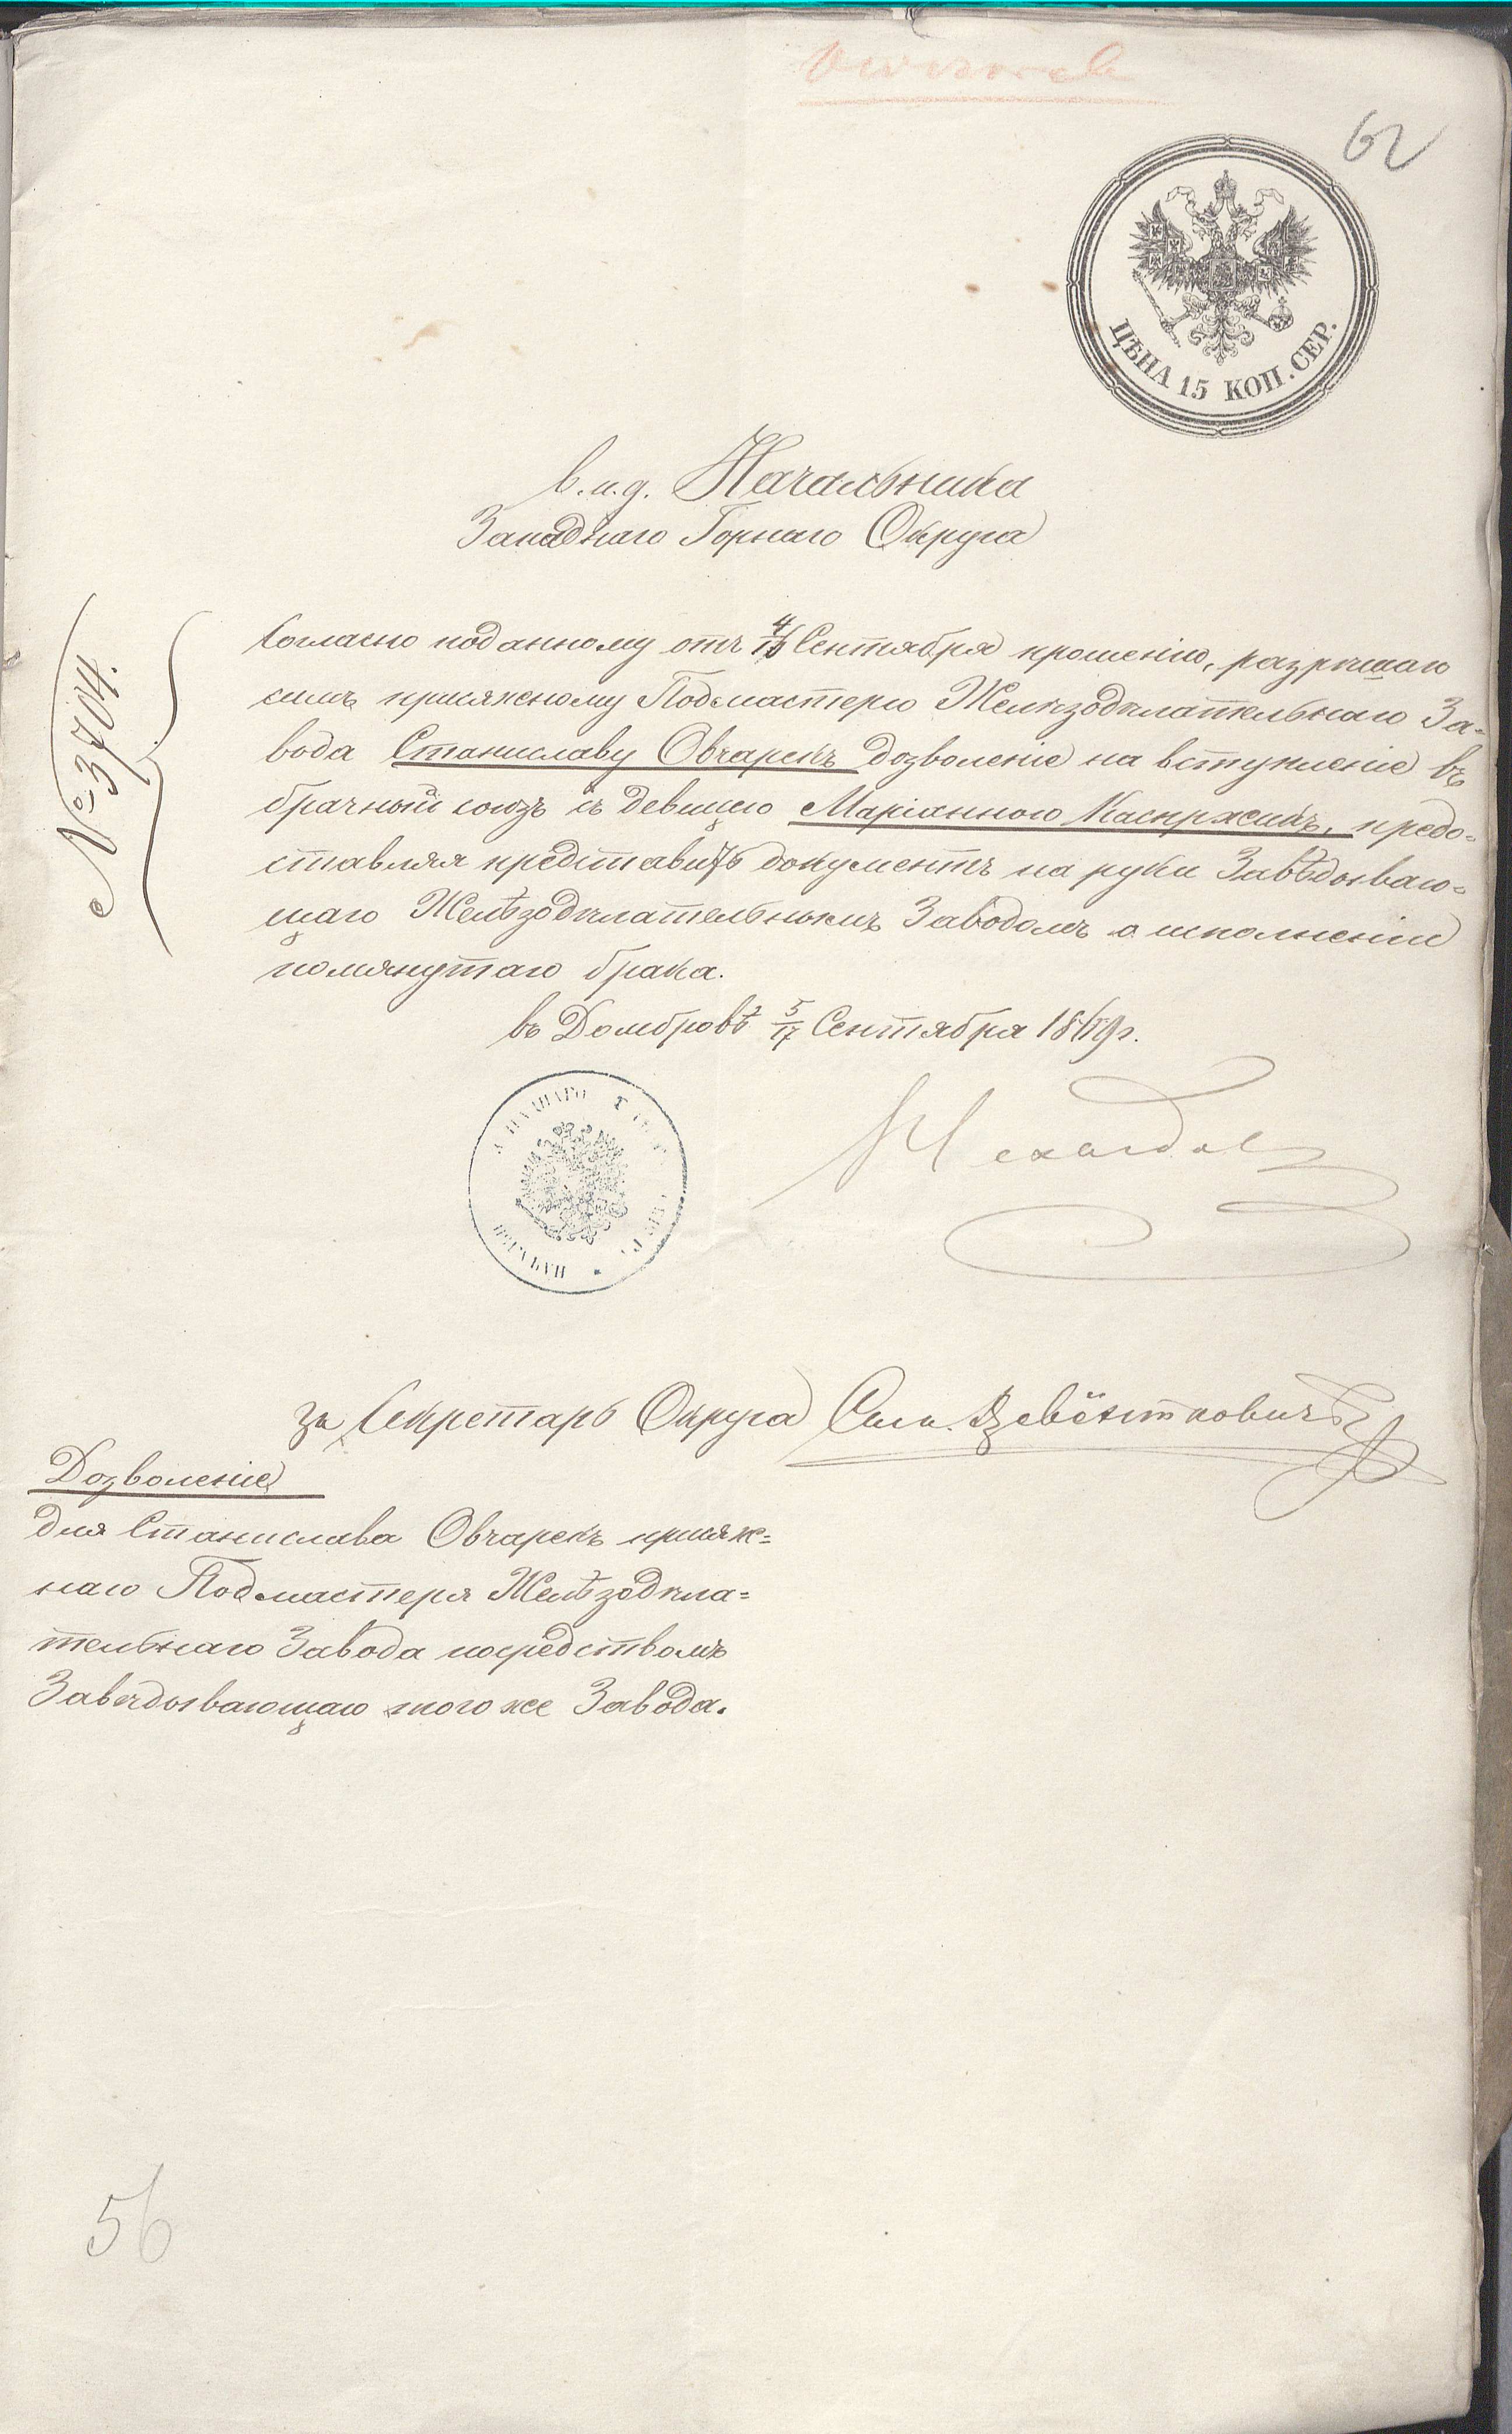 62
ЦѢНА 15 КОП. СЕР.
в.и.д. Начальника
Западнаго Горнаго Округа
№ 3704.
Согласно поданному отъ 4/16 Сентября прошенію, разрѣшаю
симъ присяжному Подмастерю Желѣзодѣлательнаго За=
вода Станиславу Овчарекъ дозволеніе на вступленіе въ
брачный союзъ съ девицею Маріанною Каспржикъ, предо=
ставляя представить документъ на руки Завѣдываю=
щаго Желѣзодѣлательнымъ Заводомъ о исполненіи
помянутаго брака.
въ Домбровѣ 5/17 Сентября 1869 г.
за Секретарь Округа
Дозволеніе
для Станислава Овчарекъ присяж=
наго Подмастеря Желѣзодѣла=
тельнаго Завода посредствомъ
Завѣдывающаго того же Завода.
56